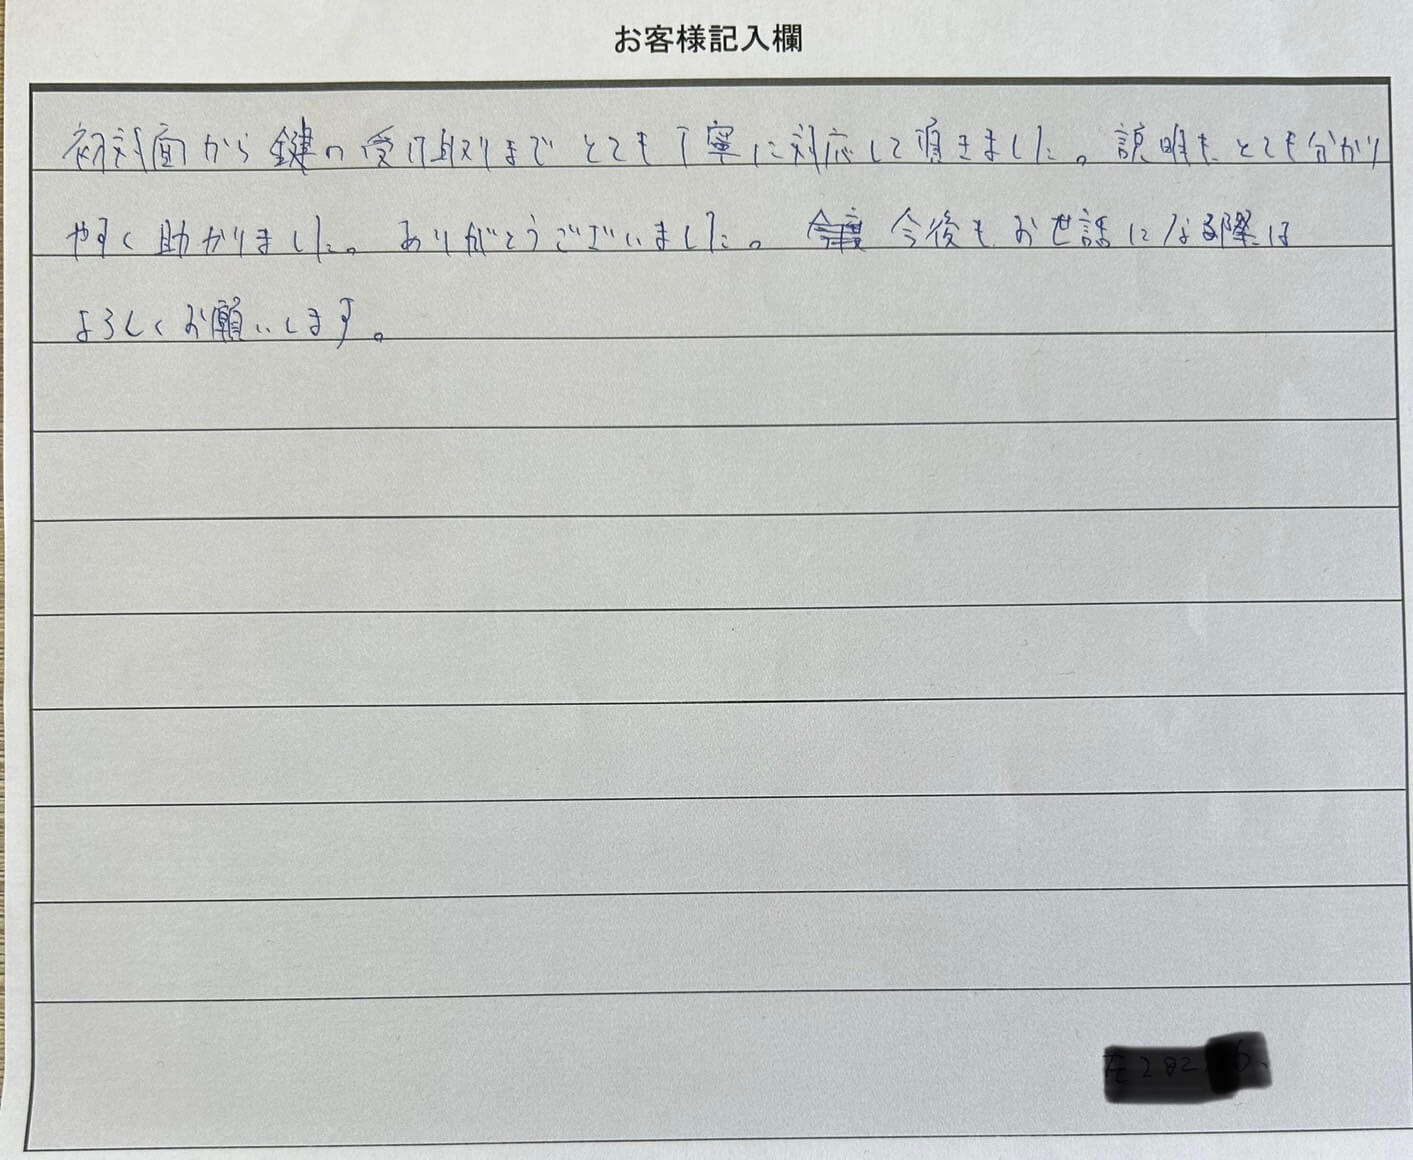 お客様記入欄
初対面から鍵の受け取りまでとても丁寧に対応して頂きました。説明もとても分かり
やすく助かりました。ありがとうございました。今後もお世話になる際は
よろしくお願いします。